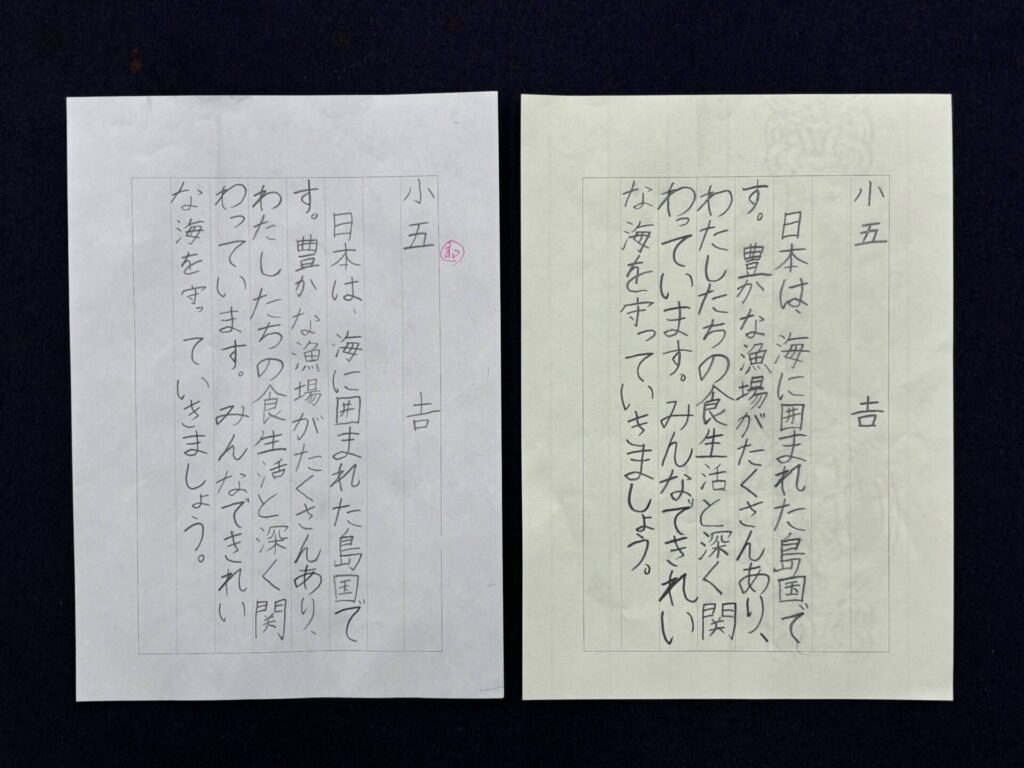 小五　吉
日本は、海に囲まれた島国で
す。豊かな漁場がたくさんあり、
わたしたちの食生活と深く関
わっています。みんなできれい
な海を守っていきましょう。
小五　吉
日本は、海に囲まれた島国で
す。豊かな漁場がたくさんあり、
わたしたちの食生活と深く関
わっています。みんなできれい
な海を守っていきましょう。